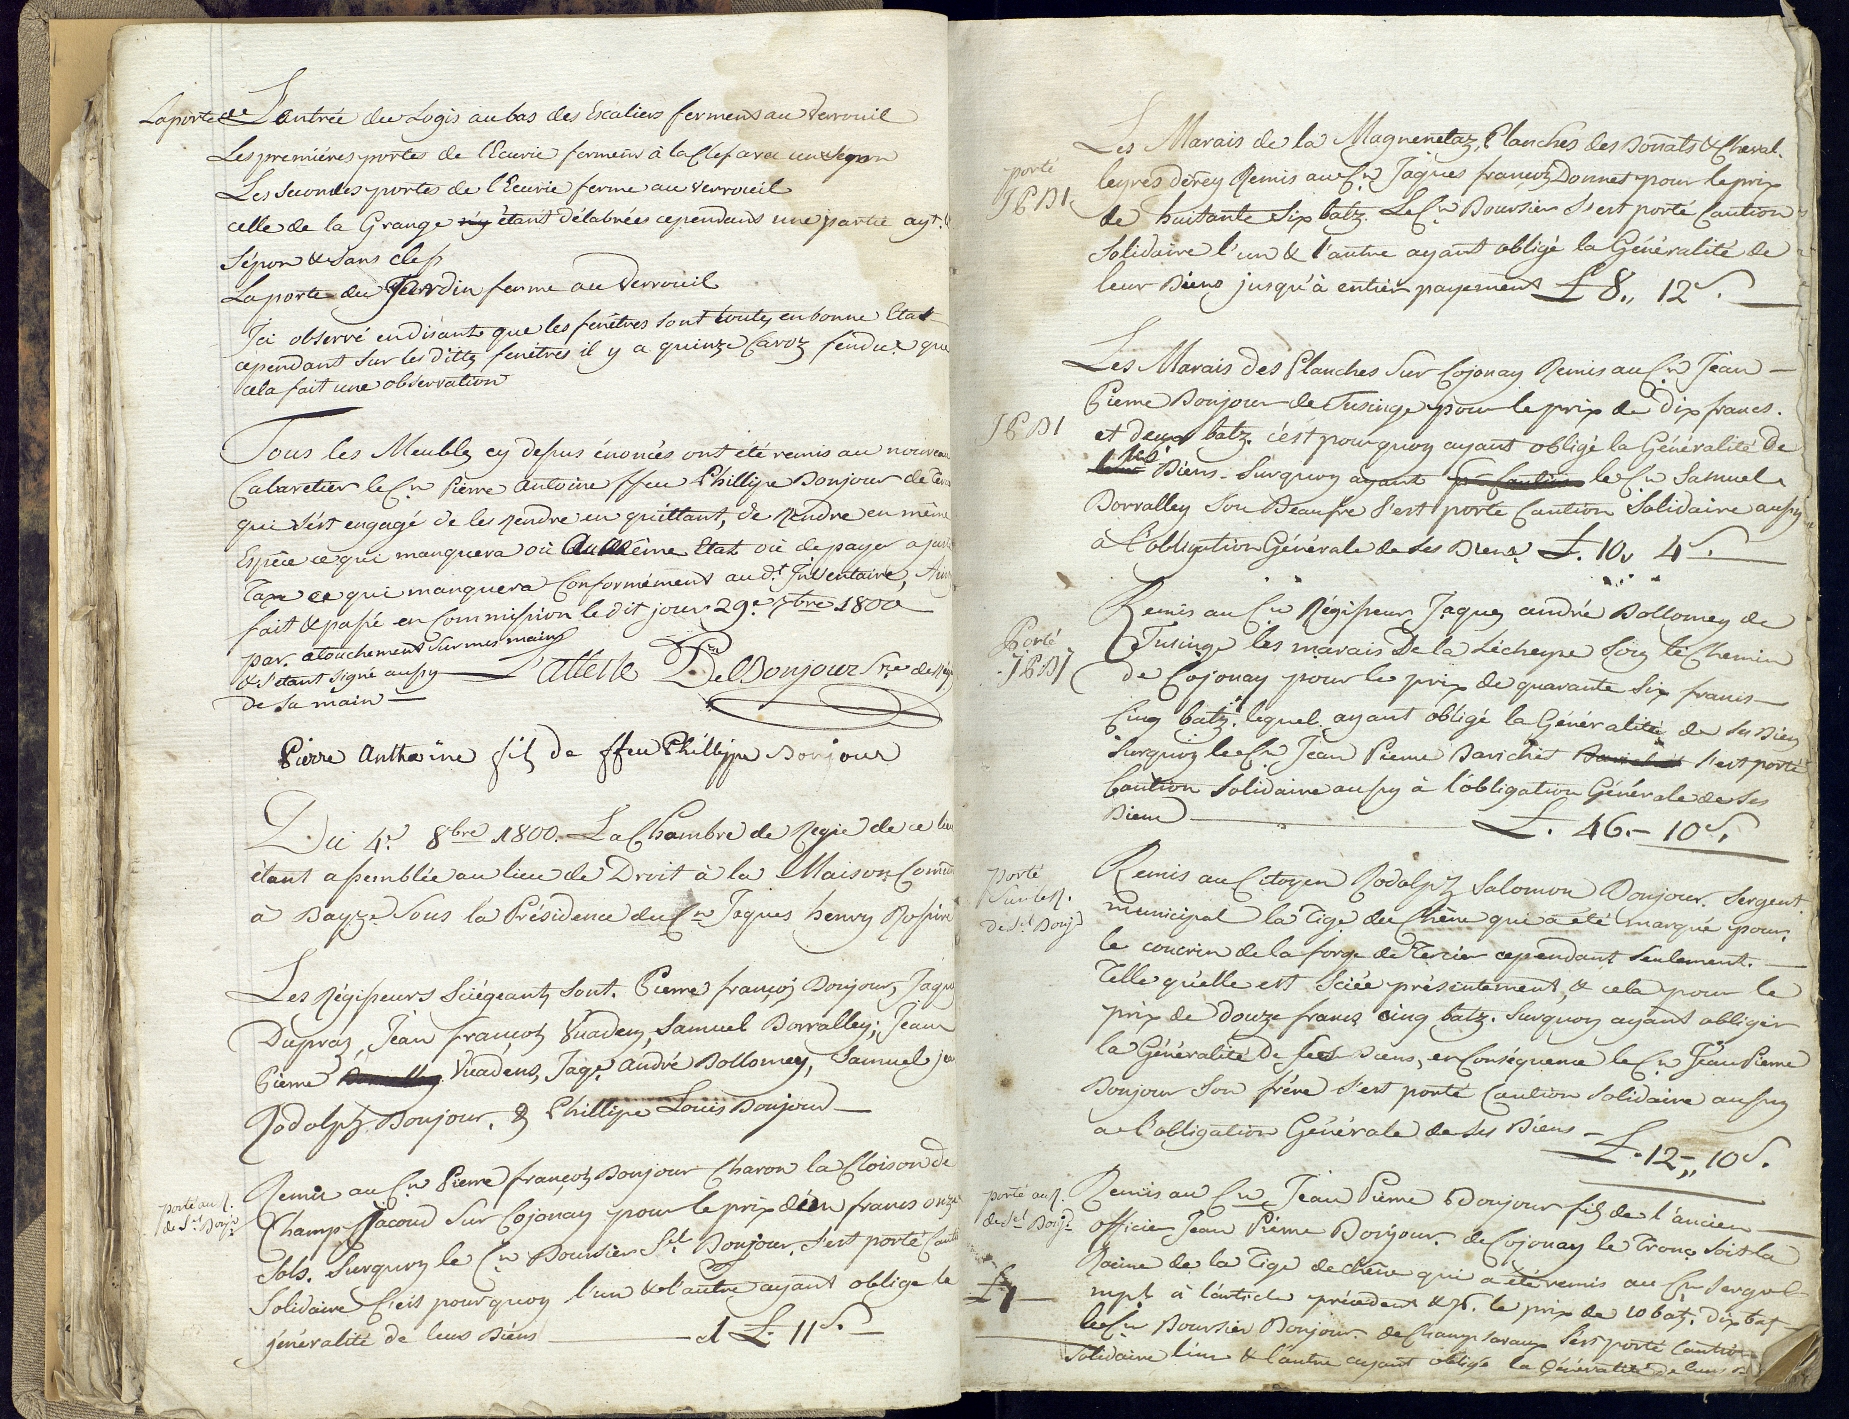 La porte de L'antrée du Logis au bas des Escaliers ferment au Verrouil
Les premiéres portes de l'Ecurie ferment à la Clef avec un Sepon
Les Secondes portes de l'Ecurie ferme au verroueil
celle de la Grange n'y étant délabrées cependant une partie ayt.
Sépon & sans clef
La porte du Jardin ferme au Verrouil
J'ai observé en disant que les fenêtres sont toutes en bonne Etat
cependant Sur les dittes fenêtres il y a quinze Caroz fendux que
cela fait une observation
Tous les Meubles cy depus énoncés ont été remis au nouveau
Cabaretier le Cn Pierre Antoine ffeu Phillipe Bonjour de
qui s'est engagé de les Rendre en quittant, de Rendre en même
Espèce ce qui manquera où au même Etat où de payer a juste
Taxe ce qui manquera Conformément au dt Inventaire,
fait & passé en Commission le dit jour 29e 7bre 1800
par atouchement Sur mes mains
& s'étant Signé aussy L'atteste De Bonjour Sre de
De Sa main
Pierre Anthoine fils de ffeu Phillippe Bonjour
Du 4e 8bre 1800. La Chambre de Regie de ce lieu
étant assemblée au lieu de Droit à la Maison
à Bayze Sous la Présidence du Cn Jaques henry
Les Régisseurs Sciégeants sont. Pierre françois Bonjour, Jaques
Dupraz, Jean françois Vuadens, Samuel Borralley; Jean
Pierre Vuadens, Jaqs André Bollomey, Samuel
Rodolph Bonjour, & Phillipe Louis Bonjour
porté au R.
de St Bonjr
Remis au Cn Pierre françois Bonjour Charon la Cloison de
Champ Jacoud Sur Cojonay pour le prix d'un francs onze
Sols. Surquoy le Cn Boursier Sl Bonjour, s'est porté
Solidaire C'est pourquoy l'un & l'autre ayant obligé la
généralité de leurs Biens 1 L. 11 S.
porté
JPBJ
Les Marais de la Magnenetaz, Planches des Bonnats & Cheval.
leyres derey Remis au Cn Jaques françois Donnet pour le prix
de huitante Six batz. Le Cn Boursier s'est porté Caution
Solidaire l'un & l'autre ayant obligé la Généralité de
leur Biens jusqu'à entier payement L 8,, 12 S.
JPBJ
Les Marais des Planches Sur Cojonay Remis au Cn Jean
Pierre Bonjour de Tusinge pour le prix de dix francs.
et deux batz. c'est pourquoy ayant obligé la Généralité de
ses Biens. Surquoy ayant le Cn Samuel
Borralley Son Beaufre s'est porté Caution Solidaire aussy
à l'obligation Générale de Ses Biens L. 10,, 4 S.
Porté
JPBJ
Remis au Cn Régisseur Jaques andrée Bollomey de
Tusinge les marais De la Lécheyre Sous le Chemin
de Cojonay pour le prix de quarante Six francs
Cinq batz. lequel ayant obligé la Généralité de ses Biens
Surquoy le Cn Jean Pierre Barichet s'est porté
Caution Solidaire aussy à l'obligation Générale de Ses
Biens L. 46.- 10 S.
porté
Sur le R.
de Sl Bonjr
Remis au Citoyen Rodolph Salomon Bonjour. Sergent.
municipal la Tige du Chêne qui a été marqué pour
le coucrin de la forge de Tercier cependant Seulement.
Telle qu'elle est Sciée présentement, & cela pour le
prix de douze francs cinq batz. Surquoy ayant obliger
la Généralité de Ses Biens, en Conséquence le Cn Jean Pierre
Bonjour Son frére s'est porté Caution Solidaire aussy
à l'obligation Générale de Ses Biens L. 12,, 10 S.
porté au R.
de Sl Bonjr
Remis au Cn Jean Pierre Bonjour fils de l'ancien
officier Jean Pierre Bonjour. de Cojonay le Tronc soit la
Racine de la Tige de Chêne qui a été remis au Cn Sergent
L 1
mpl à l'article précédent & pr. le prix de 10 bat. dix bat
le Cn Boursier Bonjour. de Champ s'est porté Caution
Solidaire l'un & l'autre ayant obligé la Généralité de leurs